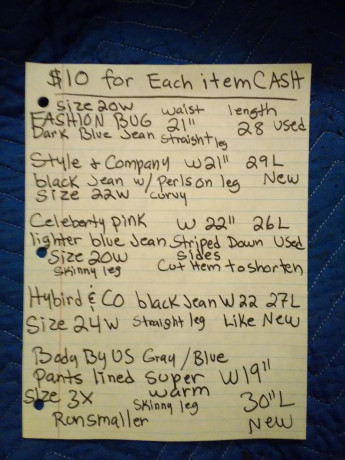 $10 for Each item CASH
Size 20W waist length
FASHION BUG 21" 28 used
Dark Blue Jean Straight leg
Style & Company W21" 29L
black Jean w/ Perls on leg New
Size 22W curvy
Celeberty pink W 22" 26L
lighter blue Jean Striped Down Used
Size 20W sides
Skinny leg Cut Hem to shorten
Hybird & Co black Jean W 22 27L
Size 24W Straight leg Like New
Body By US Gray/Blue
Pants lined super W19"
Size 3X warm
Skinny leg 30"L
Ron smaller New